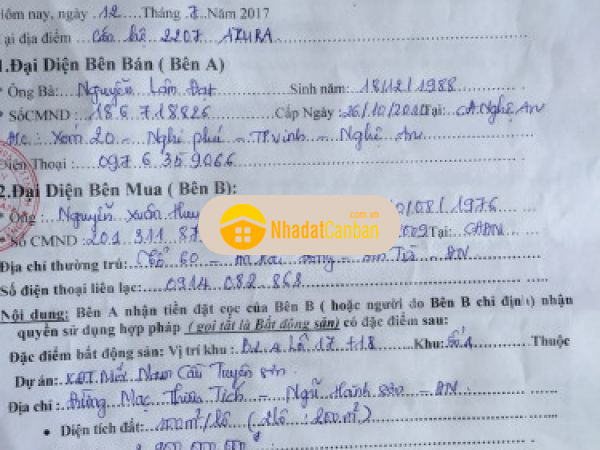 Hôm nay, ngày 12 Tháng 7 Năm 2017
Tại địa điểm Căn hộ 2207 AZURA
1.Đại Diện Bên Bán ( Bên A)
* Ông Bà: Nguyễn Lâm Đạt Sinh năm: 18/12/1988
* SốCMND: 186 718826 Cấp Ngày: 26/10/2010 Tại: CA.Nghệ An
Đ/c: Xóm 20 - Nghi phú - TP.vinh - Nghệ An
Điện Thoại: 097.6.359066
2.Đại Diện Bên Mua ( Bên B):
* Ông: Nguyễn Xuân /08/1976
* Số CMND: 201 311 87 Tại: CAĐN
NhadatCanban
.com.vn
Địa chỉ thường trú: Tổ 60 - - ĐN
Số điện thoại liên lạc: 0914.082.868
Nội dung: Bên A nhận tiền đặt cọc của Bên B ( hoặc người do Bên B chỉ định) nhận
quyền sử dụng hợp pháp (gọi tắt là Bất động sản) có đặc điểm sau:
Đặc điểm bất động sản: Vị trí khu: B2.A Lô 17+18 Khu: Số 1 Thuộc
Dự án: KĐT Mới Nam Cầu Tuyên Sơn
Địa chỉ: Đường Mạc Thiên Tích - Ngũ Hành Sơn - ĐN
• Diện tích đất: 100m²/lô (2lô: 200m²)